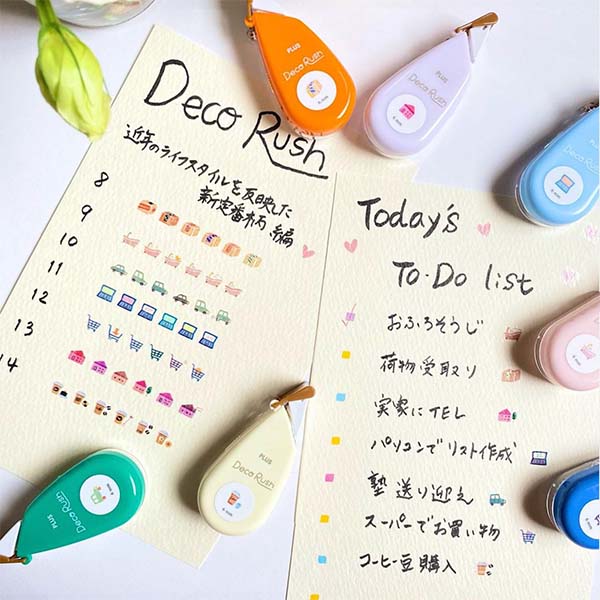 Deco Rush
近年のライフスタイルを反映した
新定番柄 編
8
9
10
11
12
13
14
Today's
To-Do list
おふろそうじ
荷物受取り
実家にTEL
パソコンでリスト作成
塾送り迎え
スーパーでお買い物
コーヒー豆購入
PLUS
Deco Rush
6 mm
PLUS
Deco Rush
6 mm
Deco Rush
6 mm
6 mm
PLUS
Deco Rush
6 mm
PLUS
Deco Rush
6 mm